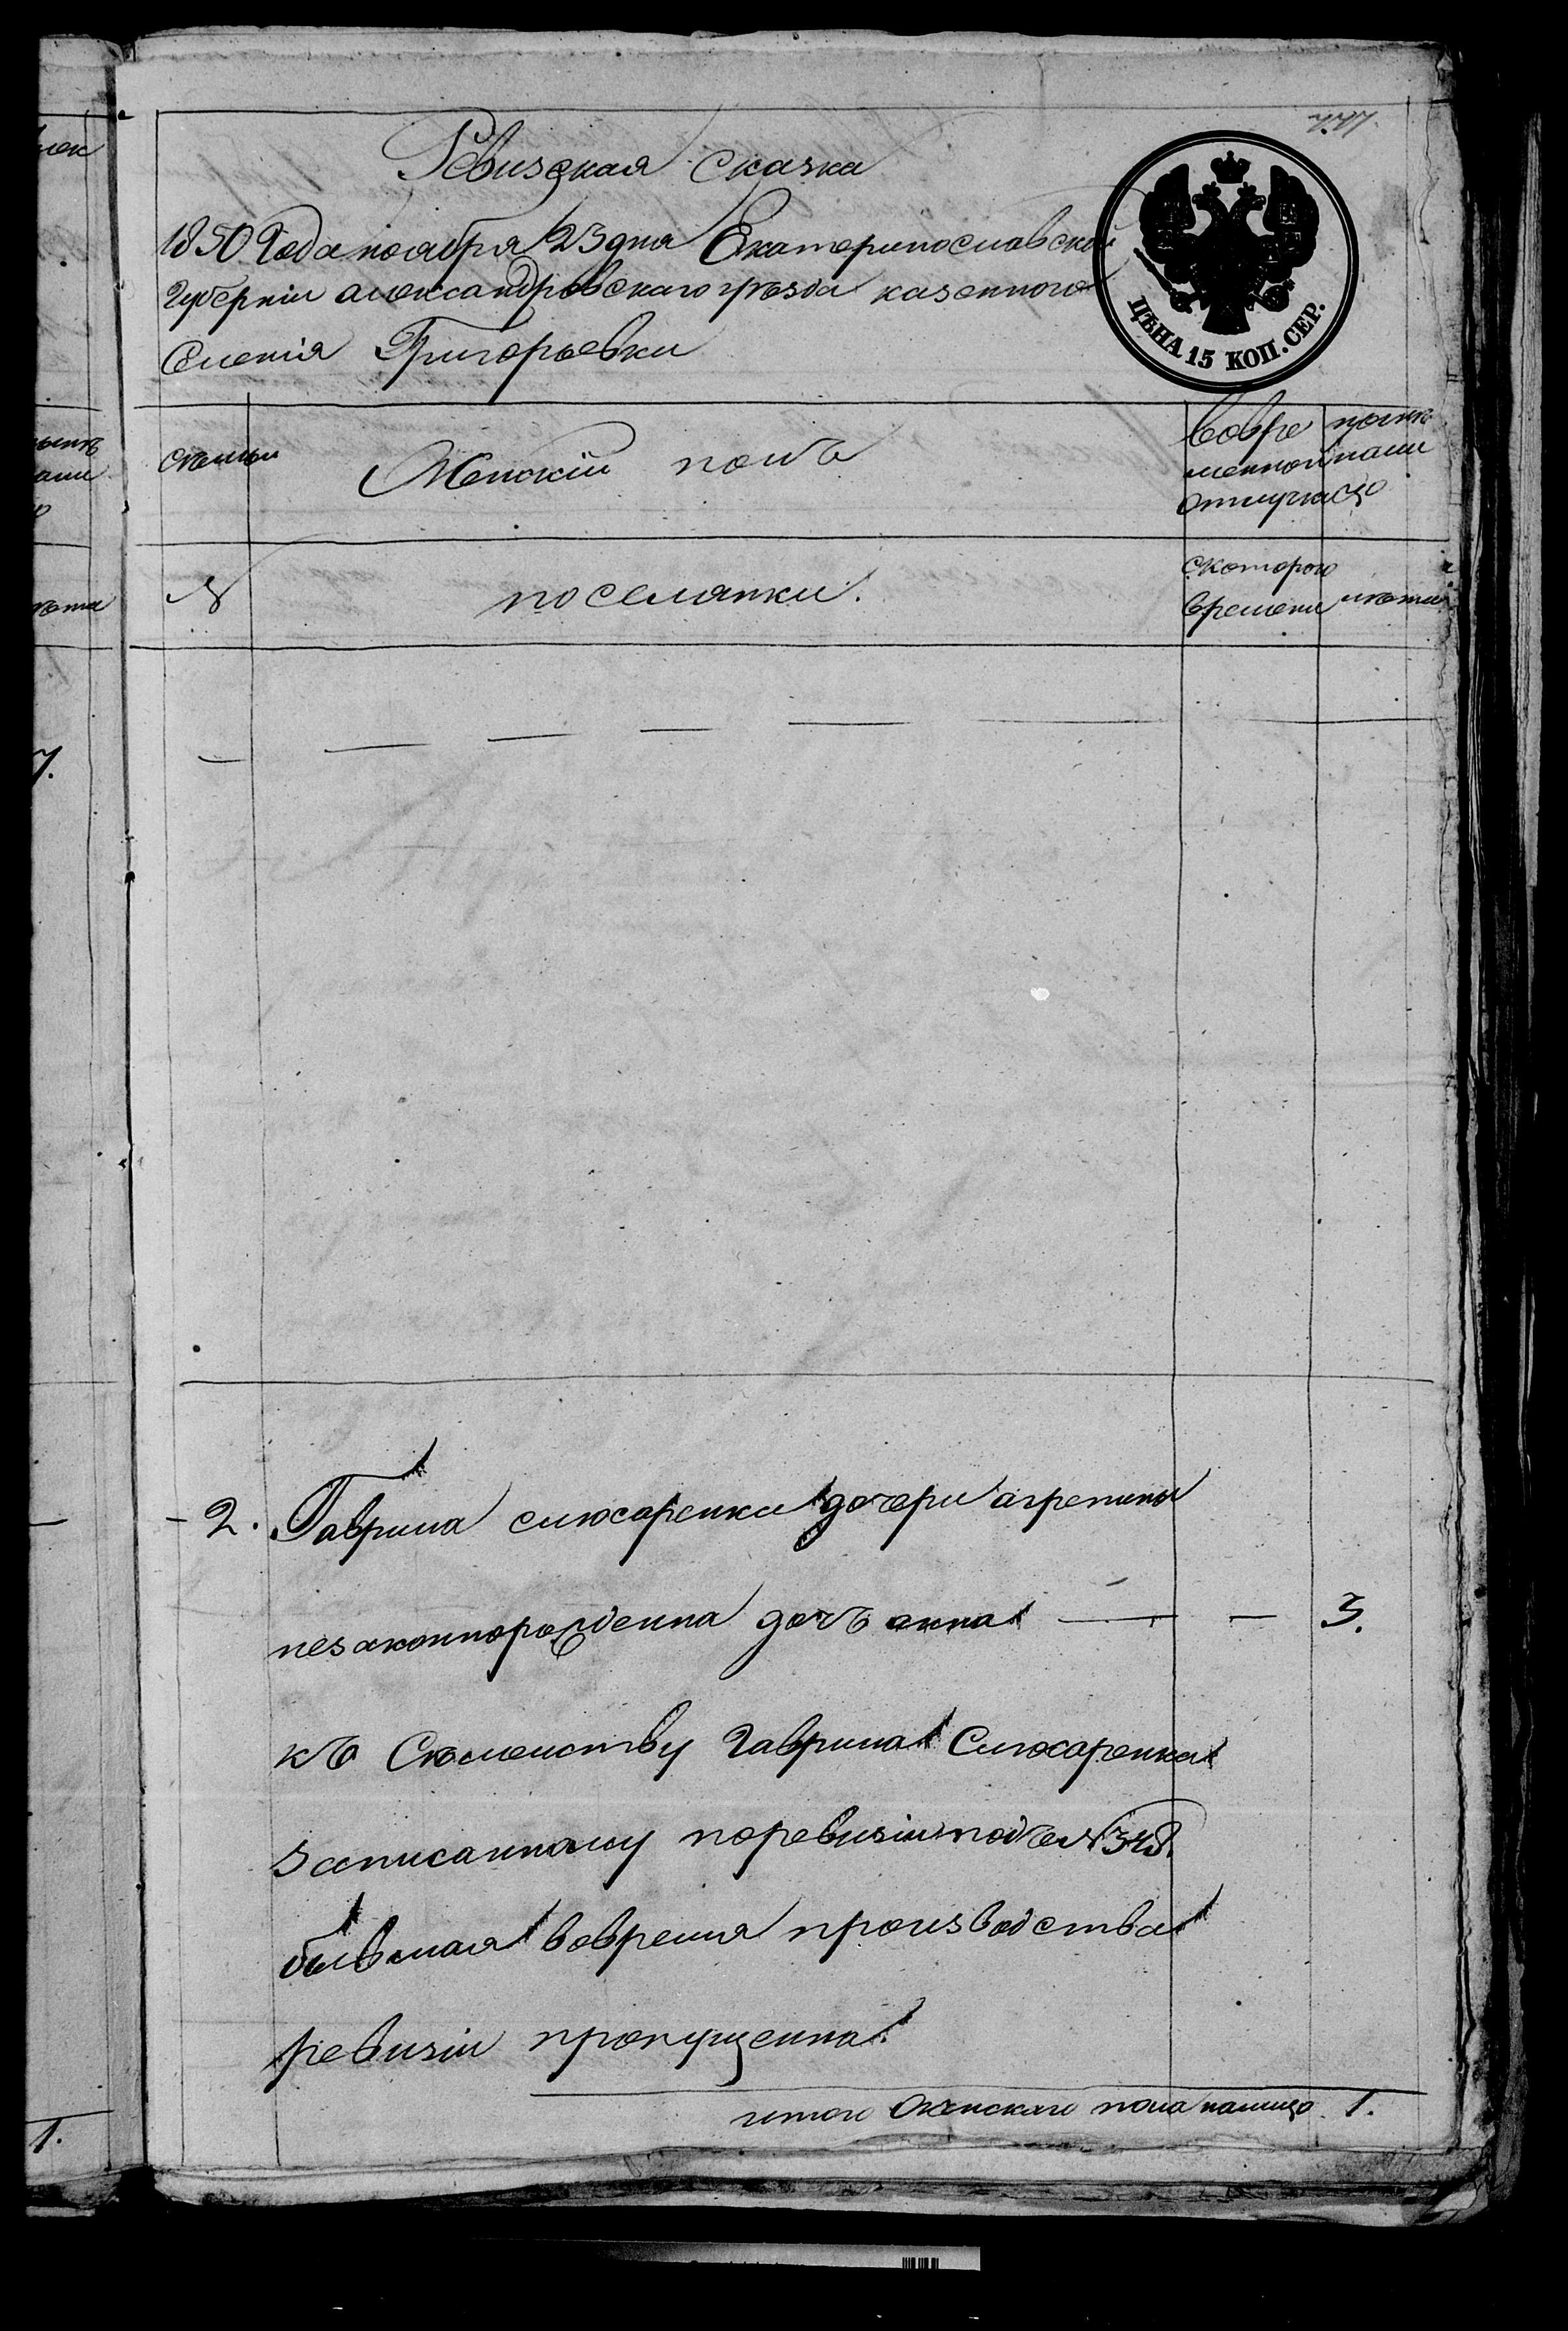 Ревизская сказка
1850 Года ноября 23 дня Екатеринославской
Губерніи александровскаго уѣзда казенного
Селенія Григорьевки
ЦѢНА 15 КОП. СЕР.
семьи
Женскій полъ
Вовре
менной
отлучки
нынѣ
нали
цо
№
поселянки.
скоторого
времени
лѣта
2. Гаврила слюсаренка дочери агрепины
незаконнорожденна дочъ анна — — 3.
къ Семейству Гаврила Слюсаренка
записанному поревизіи подъ №
бывшая вовремя производства
ревизіи пропущенна
итого женскаго пола налицо 1.
7.
1.